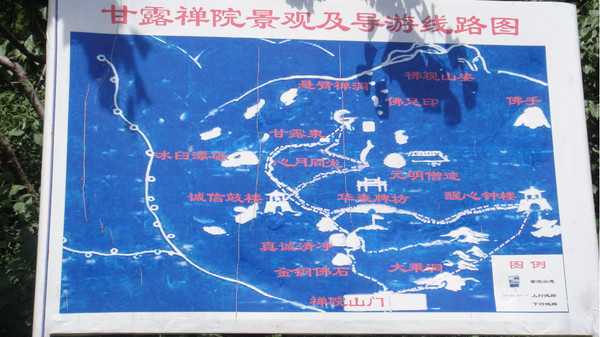 甘露禅院景观及导游线路图
佛现山峦
悬臂禅洞
佛足印
佛手
甘露泉
冰臼漂砾
心月同光
元明僧迹
诚信鼓楼
华泰牌坊
醒心钟楼
真诚清净
金铜佛石
大乘洞
禅院山门
图例
上行线路
下行线路